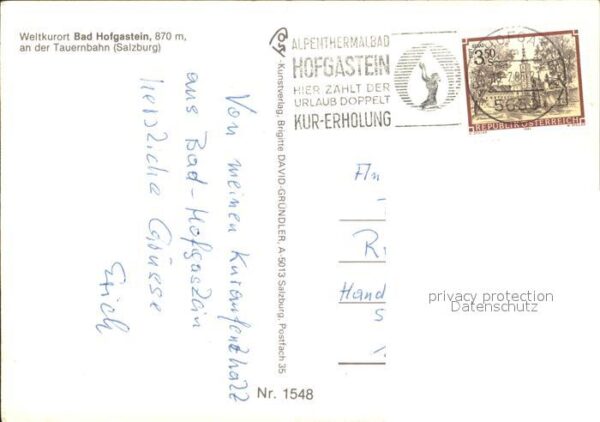 Weltkurort Bad Hofgastein, 870 m,
an der Tauernbahn (Salzburg)
Von meinen Kuraufenthalt
aus Bad-Hofgastein
herzliche Grüsse
Erich
Kunstverlag, Brigitte DAVID-GRÜNDLER, A-5013 Salzburg, Postfach 35
Nr. 1548
ALPENTHERMALBAD
HOFGASTEIN
HIER ZÄHLT DER
URLAUB DOPPELT
KUR-ERHOLUNG
3.50
REPUBLIK ÖSTERREICH
An
R
Hand
privacy protection
Datenschutz